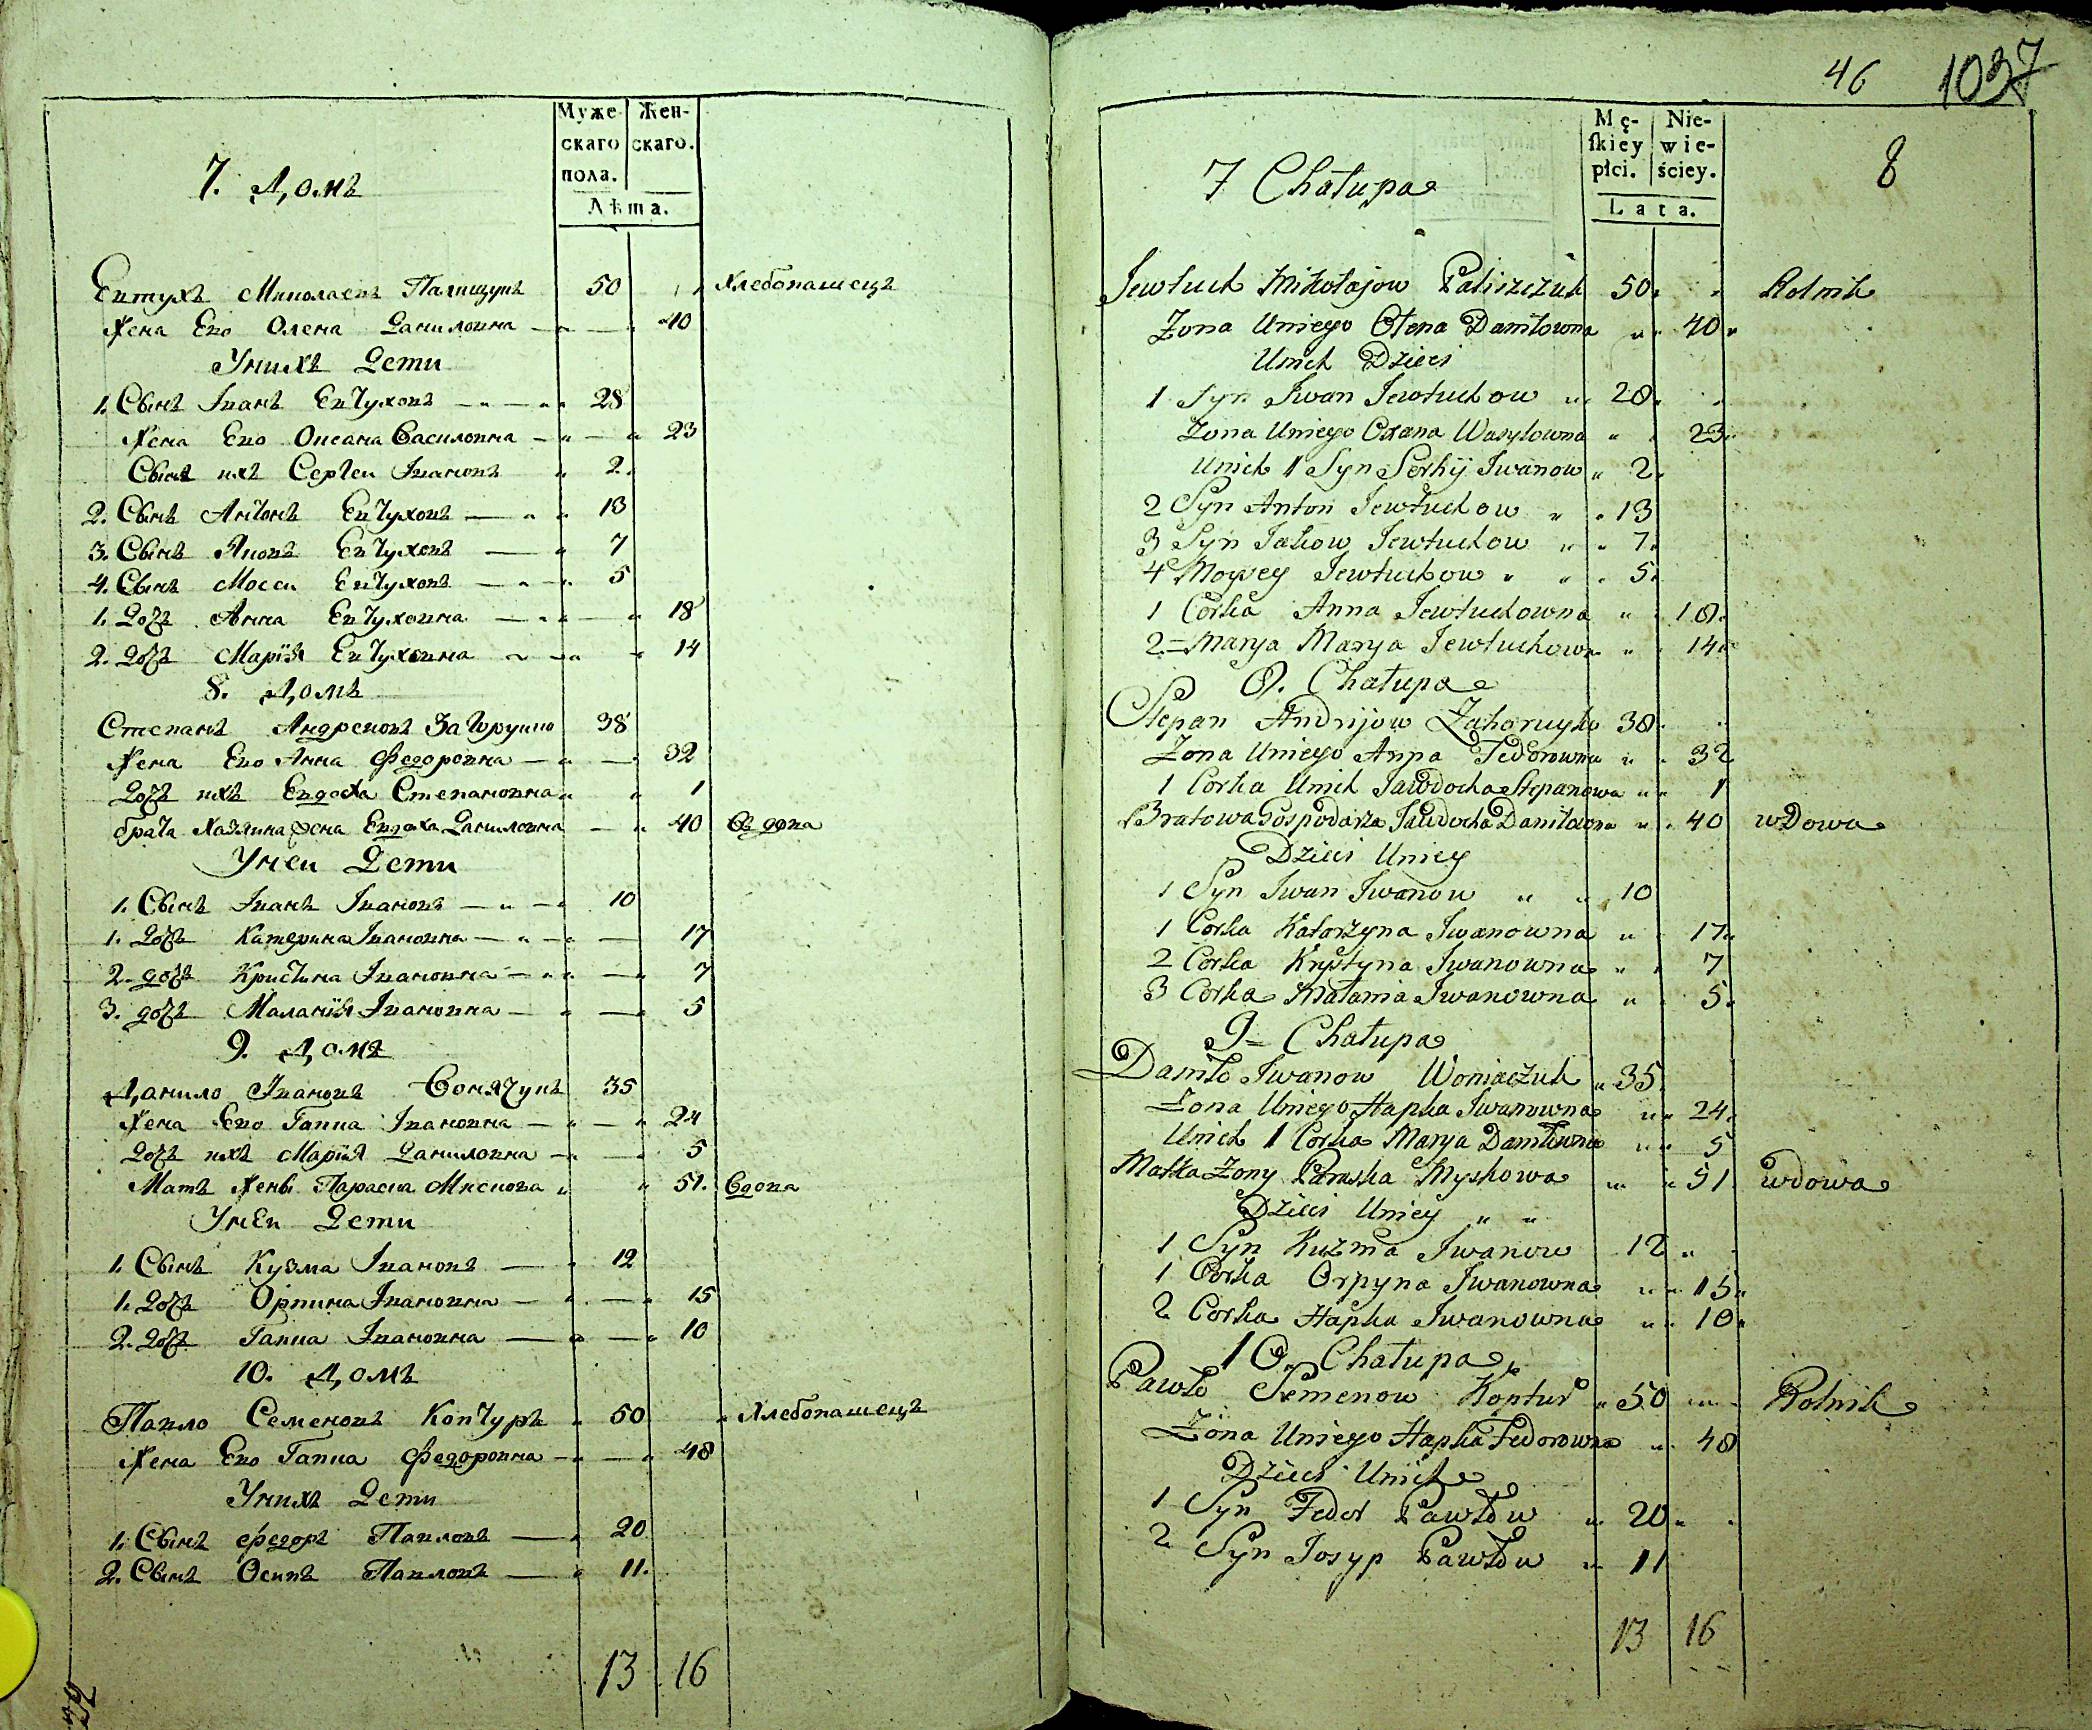 Муже-
скаго
пола.
Жен-
скаго.
Лѣта.
7. Домъ
Евтухъ Миколаевъ Палищукъ 50 Хлебопашецъ
Жена Ево Олена Даниловна 40
Унихъ Дети
1. Сынъ Iванъ Евтуховъ 28
Жена Ево Оксана Василовна 23
Сынъ ихъ Сергеи Iвановъ 2.
2. Сынъ Антонъ Евтуховъ 13
3. Сынъ Яковъ Евтуховъ 7
4. Сынъ Мосеи Евтуховъ 5
1. Дочъ Анна Евтуховна 18
2. Дочъ Марiя Евтуховна 14
8. Домъ
Степанъ Андреювъ Загоруико 38
Жена Ево Анна Федоровна 32
Дочъ ихъ Евдоха Степановна 1
брата хазяина жена Евдоха Даниловна 40 Вдова
Унеи Дети
1. Сынъ Iванъ Iвановъ 10
1. Дочъ Катерина Iвановна 17
2. дочъ Кристина Iвановна 7
3. дочъ Маланiя Iвановна 5
9. Домъ
Данило Iвановъ Вонячукъ 35
Жена Ево Гапка Iвановна 24
Дочъ ихъ Марiя Даниловна 5
Матъ Жены Параска Мискова 51. Вдова
Унеи Дети
1. Сынъ Кузма Iвановъ 12
1. Дочъ Орпина Iвановна 15
2. Дочъ Гапка Iвановна 10
10. Домъ
Павло Семеновъ Коптуръ 50 Хлебопашецъ
Жена Ево Гапка Федоровна 48
Унихъ Дети
1. Сынъ Федоръ Павловъ 20
2. Сынъ Осипъ Павловъ 11.
13 16
46 1037
Mę-
skiey
płci.
Nie-
wie-
ściey.
Lata.
8
7 Chałupa
Jewtuch Mikołajow Paliszczuk 50 Rolnik
Żona Uniego Ołena Daniłowna 40
Unich Dzieci
1 Syn Iwan Jewtuchow 28
Żona Uniego Oxana Wasylowna 23
Unich 1 Syn Serhij Iwanow 2
2 Syn Anton Jewtuchow 13
3 Syn Jakow Jewtuchow 7
4 Moysey Jewtuchow 5
1 Corka Anna Jewtuchowna 18
2 = Marya Marya Jewtuchowna 14
8. Chałupa
Stepan Andrijow Zahoruyko 38
Żona Uniego Anna Fedorowna 32
1 Corka Unich Jawdocha Stepanowa 1
Bratowa Gospodarza Jawdocha Daniłowna 40 wDowa
Dzieci Uniey
1 Syn Iwan Iwanow 10
1 Corka Katarzyna Iwanowna 17
2 Corka Krystyna Iwanowna 7
3 Corka Małania Iwanowna 5
9 = Chałupa
Daniło Iwanow Woniaczuk 35
Żona Uniego Hapka Iwanowna 24
Unich 1 Corka Marya Daniłowna 5
Matka Żony Paraska Myskowa 51 wdowa
Dzieci Uniey
1 Syn Kuzma Iwanow 12
1 Corka Orpyna Iwanowna 15
2 Corka Hapka Iwanowna 10
10. Chałupa
Pawło Semenow Koptur 50 Rolnik
Żona Uniego Hapka Fedorowna 48
Dzieci Unich
1 Syn Fedor Pawłow 20
2 Syn Josyp Pawłow 11
13 16